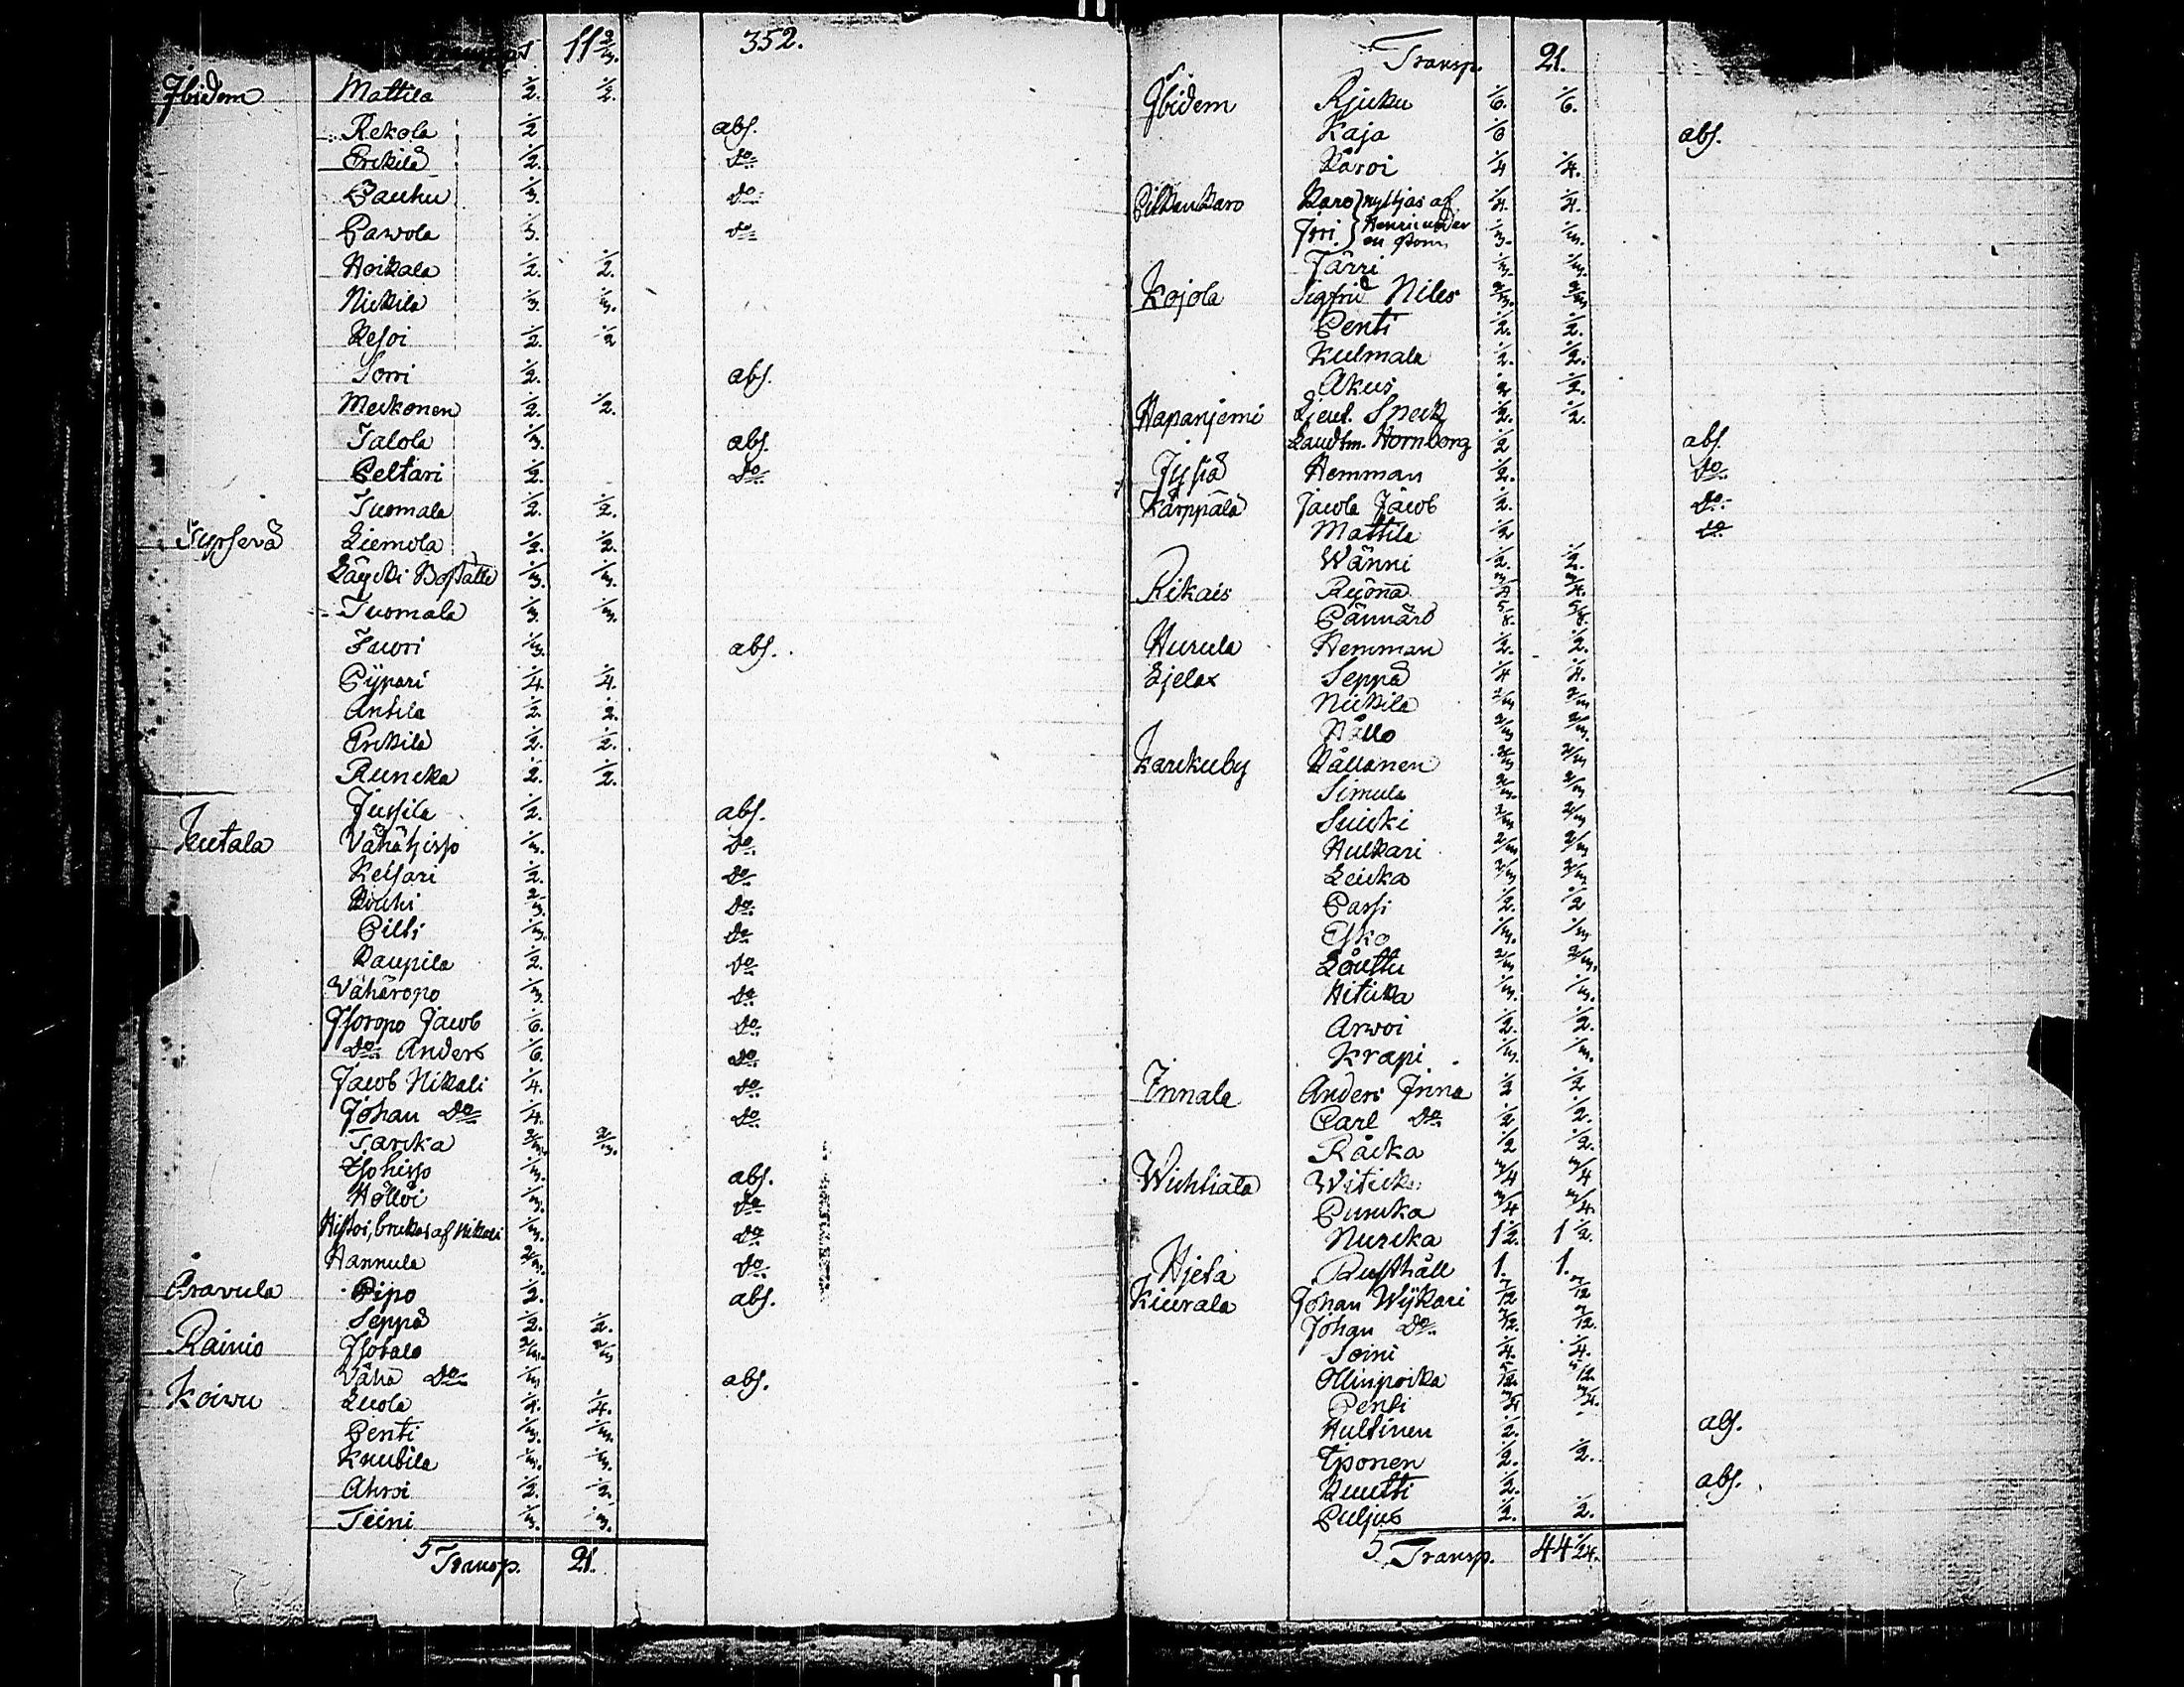 11 2/3. 352.
Ibidem Mattila 1/2. 1/2.
Rekola 1/2 abs.
Erkilä 1/2. Do
Bauhu 1/3. Do
Pawola 1/3. Do
Hoikala 1/2. 1/2.
Nickila 1/3. 1/3.
Kesoi 1/2. 1/2
Sorri 1/2. abs.
Meckonen 1/2. 1/2.
Talola 1/3. abs.
Peltari 1/2. Do
Tuomala 1/2. 1/2.
Liemola 1/2. 1/2.
1/3. 1/3.
Tuomala 1/3. 1/3.
Juori 1/3. abs.
Pypari 1/4. 1/4.
Antila 1/2. 1/2.
Erkilä 1/2. 1/2.
Runcka 1/2. 1/2.
Jussila 1/2. abs.
Kutala Vähähisso 1/3. Do
Kelsari 1/2. Do
Kouhi 2/3. Do
Pilli 1/3. Do
Kaupila 1/2. Do
Vähäropo 1/3. Do
Isoropo Jacob 1/6. Do
Do Anders 1/6. Do
Jacob Nikali 1/4. Do
Johan Do 1/4. Do
Tarcka 2/3. 2/3.
Isohisso 1/3. abs.
Hölloi 1/3. Do
brukas af Nikali 1/3. Do
Hannula 2/3. Do
Aravula Pipo 1/2. abs.
Seppä 1/2. 1/2.
Rainio Isotalo 2/3. 2/3
Vähä Do 1/3 abs.
Koivu Luola 1/4. 1/4.
Penti 1/3. 1/3.
Knubila 1/3. 1/3.
Ahroi 1/2. 1/2.
Teini 1/3. 1/3.
Transp. 21.
Transp. 21.
Ibidem Rjuku 1/6. 1/6.
Kaja 1/6 abs.
Käroi 1/4 1/4.
Karo nyttjas af 1/4. 1/4.
1/3. 1/3.
Järri 1/3. 1/3.
Kojola Sigfrid Niles 2/3. 2/3
Penti 1/2. 1/2.
Kulmala 1/2. 1/2.
Akus 1/2 1/2.
Hapanjemi Ljeut. Speck 1/2. 1/2.
Landtm. Hornborg 1/2 abs.
Hemman 1/2. Do
Karppala Jacola Jacob 1/2. Do
Mattila 1/2 Do
Wänni 1/2. 1/2.
Rikais Ryönä 3/4 3/4.
Pännärö 5/8. 5/8.
Hurula Hemman 1/2. 1/2.
Ljelax Seppä 1/4 1/4.
Nickila 2/3 2/3
Källo 2/3 2/3.
Karckuby Källanen 2/3 2/3
Simula 2/3. 2/3
Suicki 2/3 2/3
Hulkari 2/3 2/3
Leicka 2/3 2/3
Passi 1/2. 1/2
Esko 1/3. 1/3
Louttu 2/3 2/3.
Hiticka 1/3. 1/3.
Arwoi 1/2. 1/2.
Krapi 1/3. 1/3.
Innala Anders Inna 1/2 1/2
Carl Do 1/2 1/2.
Räcka 1/2 1/2.
Wichliala Witicka 3/4 3/4
Puncka 3/4 3/4.
Nurcka 1 1/2. 1 1/2.
Hjeta Rusthåll 1. 1.
Kiurala Johan Wykari 7/12 7/12
Johan Do 7/12. 7/12.
Soini 1/4. 1/4.
Ollinpoika 5/12. 5/12.
Penti 3/4 3/4.
Hultinen 1/2. abs.
Iponen 1/2. 1/2.
Kuutti 1/2. abs.
Puljus 1/2. 1/2.
Transp. 44 1/24.